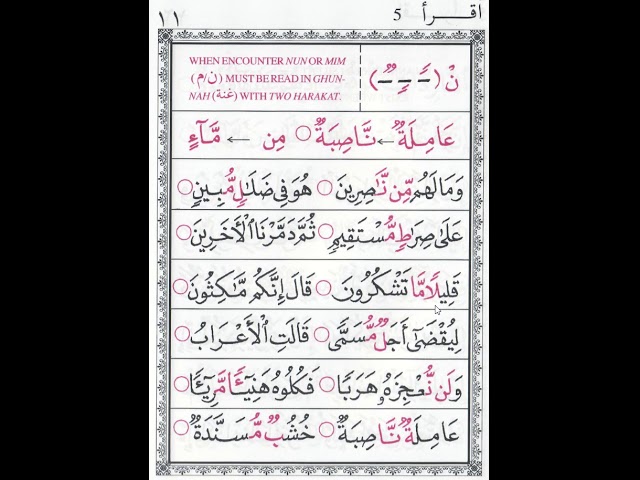 اقرأ 5 ١١
نْ (ـًـ ـٍـ ـٌـ)
WHEN ENCOUNTER NUN OR MIM
(ن/م) MUST BE READ IN GHUN-
NAH (غنة) WITH TWO HARAKAT.
عَامِلَةٌ ← نَّاصِبَةٌ ○ مِن ← مَّآءٍ
وَمَا لَهُم مِّن نَّاصِرِينَ ○ هُوَ فِى ضَلَـٰلٍ مُّبِينٍ ○
عَلَىٰ صِرَٰطٍ مُّسْتَقِيمٍ ○ ثُمَّ دَمَّرْنَا ٱلْأَخَرِينَ ○
قَلِيلًا مَّا تَشْكُرُونَ ○ قَالَ إِنَّكُم مَّـٰكِثُونَ ○
لِيُقْضَىٰٓ أَجَلٌ مُّسَمًّى ○ قَالَتِ ٱلْأَعْرَابُ ○
وَلَن نُّعْجِزَهُۥ هَرَبًا ○ فَكُلُوهُ هَنِيٓـًٔا مَّرِيٓـًٔا ○
عَامِلَةٌ نَّاصِبَةٌ ○ خُشُبٌ مُّسَنَّدَةٌ ○